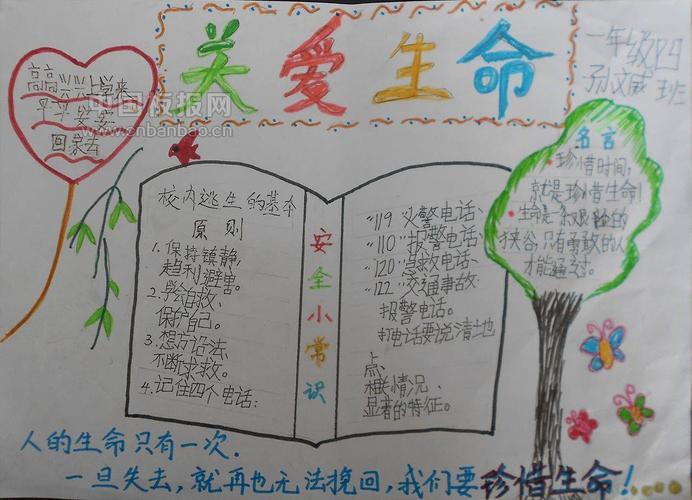 关爱生命
一年级四班
孙文威
高高兴兴上学来
平平安安
回家去
中国板报网
www.cnbanbao.cn
名言
珍惜时间,
就是珍惜生命!
生命是一条艰险的
狭谷,只有勇敢的人
才能通过。
校内逃生的基本
原则
1.保持镇静,
趋利避害。
2.学会自救,
保护自己。
3.想方设法,
不断求救。
4.记住四个电话:
安全小常识
“119”火警电话、
“110”报警电话、
“120”急救电话、
“122”交通事故
报警电话。
打电话要说清土地
点、
相关情况、
显著的特征。
人的生命只有一次.
一旦失去,就再也无法挽回,我们要珍惜生命!....